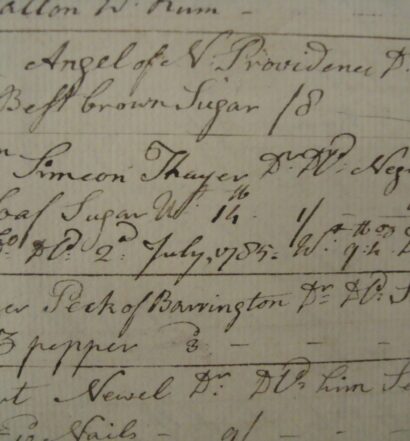 allon W. Rum –
Angel of N. Providence Dr.
Best brown Sugar /8
Simeon Thayer Dr. Dd. Neg
oaf Sugar Wt. 14 lb 1/ –
Dd. 2d July, 1785. Wt. 9.4
er Peck of Barrington Dr. Dd. S
3 pepper 3d – – –
t Newel Dr. Dd. him Se
Nails – 9/ – –